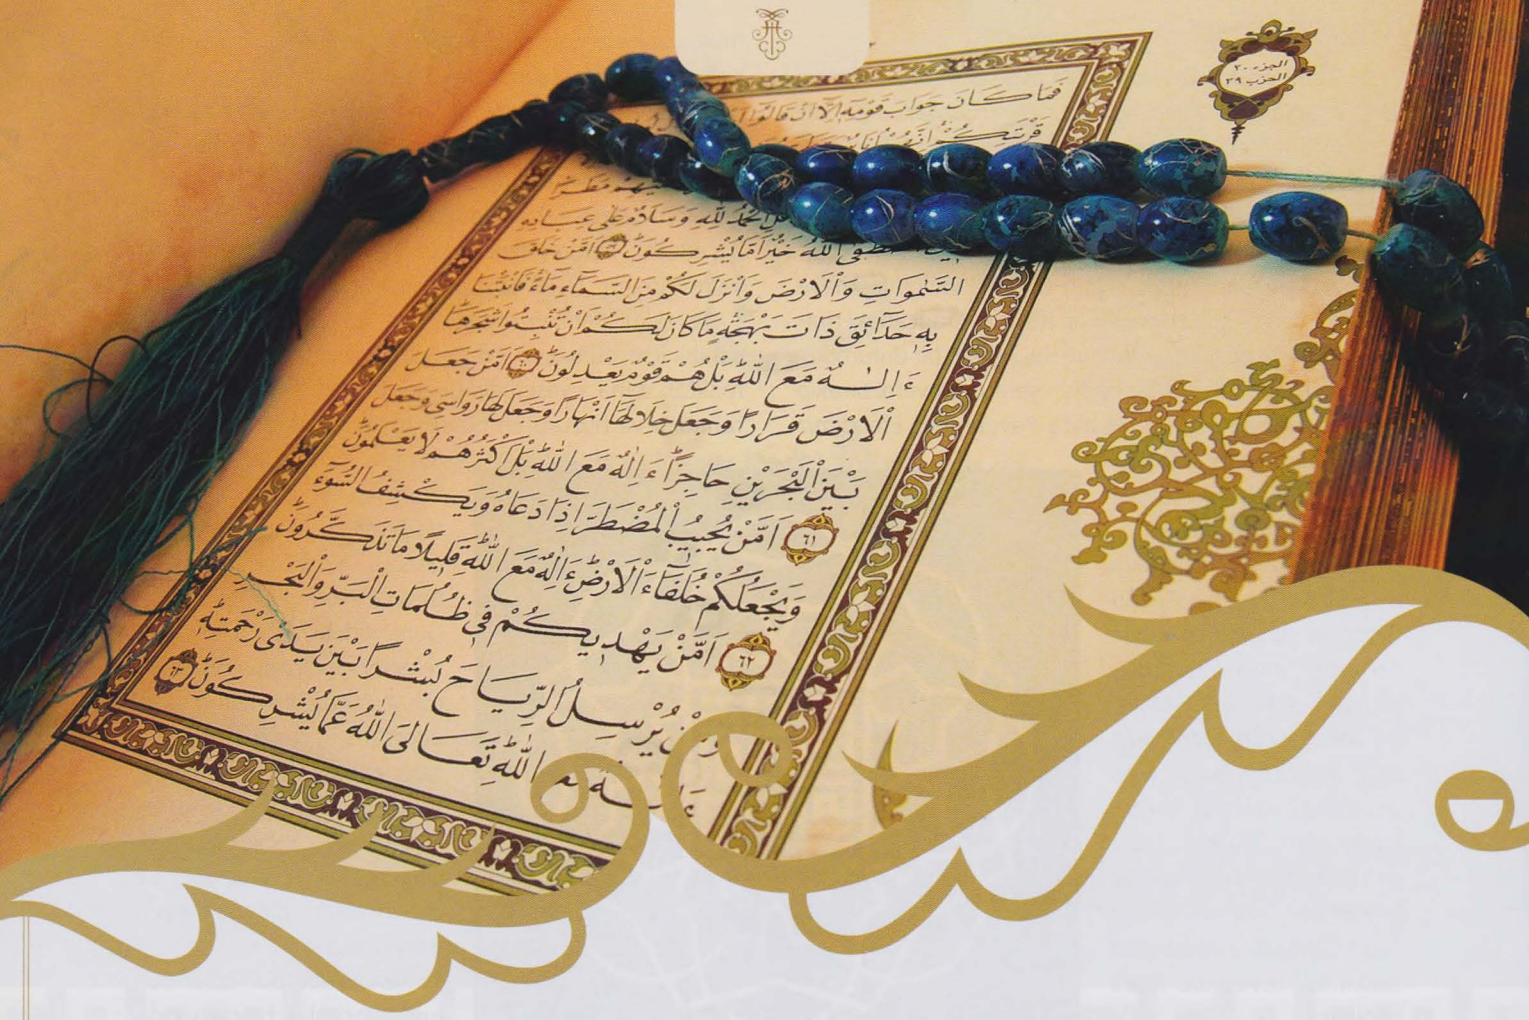 الجزء ٢٠
الحزب ٣٩
فَمَا كَانَ جَوَابَ قَوْمِهِ اِلَّا اَنْ قَالُوا
قَرْيَتِكُمْ اِنَّهُمْ اُنَاسٌ
الْحَمْدُ لِلّٰهِ وَسَلَامٌ عَلٰى عِبَادِهِ
اللّٰهُ خَيْرٌ اَمَّا يُشْرِكُونَ ۝ اَمَّنْ خَلَقَ
السَّمٰوَاتِ وَالْاَرْضَ وَاَنْزَلَ لَكُمْ مِنَ السَّمَاءِ مَاءً فَاَنْبَتْنَا
بِهِ حَدَائِقَ ذَاتَ بَهْجَةٍ مَا كَانَ لَكُمْ اَنْ تُنْبِتُوا شَجَرَهَا
ءَاِلٰهٌ مَعَ اللّٰهِ بَلْ هُمْ قَوْمٌ يَعْدِلُونَ ۝ اَمَّنْ جَعَلَ
الْاَرْضَ قَرَارًا وَجَعَلَ خِلَالَهَا اَنْهَارًا وَجَعَلَ لَهَا رَوَاسِىَ وَجَعَلَ
بَيْنَ الْبَحْرَيْنِ حَاجِزًا ءَاِلٰهٌ مَعَ اللّٰهِ بَلْ اَكْثَرُهُمْ لَا يَعْلَمُونَ
٦١ اَمَّنْ يُجِيبُ الْمُضْطَرَّ اِذَا دَعَاهُ وَيَكْشِفُ السُّوءَ
وَيَجْعَلُكُمْ خُلَفَاءَ الْاَرْضِ ءَاِلٰهٌ مَعَ اللّٰهِ قَلِيلًا مَا تَذَكَّرُونَ
٦٢ اَمَّنْ يَهْدِيكُمْ فِى ظُلُمَاتِ الْبَرِّ وَالْبَحْرِ
وَمَنْ يُرْسِلُ الرِّيَاحَ بُشْرًا بَيْنَ يَدَىْ رَحْمَتِهِ
ءَاِلٰهٌ مَعَ اللّٰهِ تَعَالَى اللّٰهُ عَمَّا يُشْرِكُونَ ٦٣